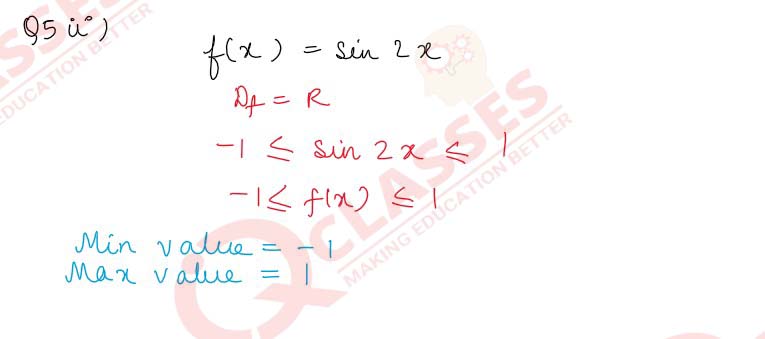 Q5 ii°)
f(x) = sin 2x
D_f = R
-1 ≤ sin 2x ≤ 1
-1 ≤ f(x) ≤ 1
Min value = -1
Max value = 1
CLASSES
MAKING EDUCATION BETTER
SSES
EDUCATION BETTER